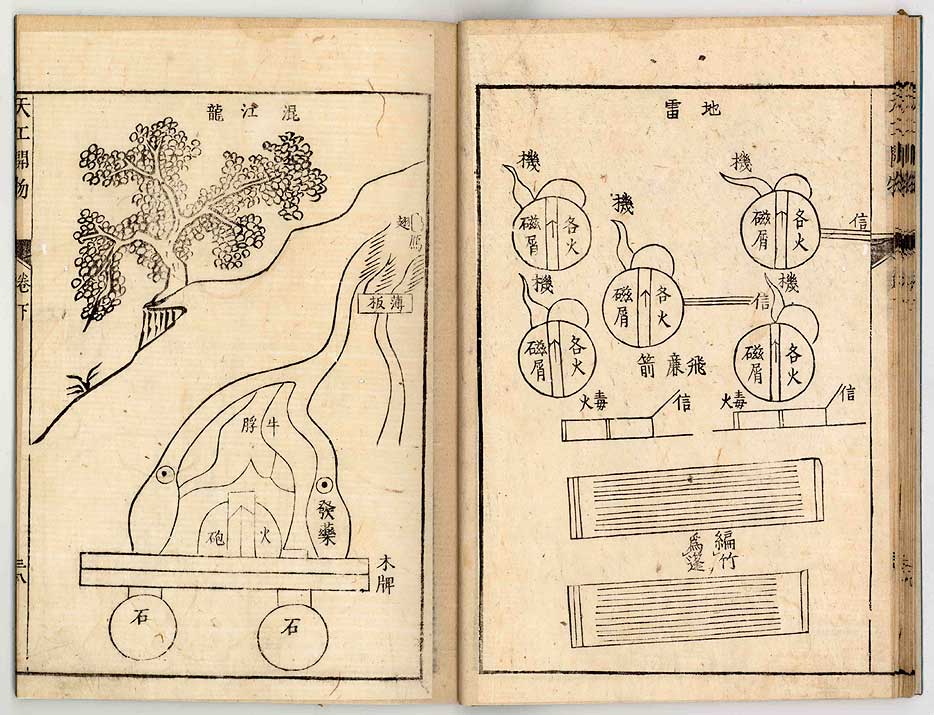 地雷
機
各火
磁屑
信
機
各火
磁屑
信
機
各火
磁屑
機
各火
磁屑
機
各火
磁屑
飛廉箭
信
毒火
信
毒火
編竹
爲篷
混江龍
翅
薄板
牛脬
發藥
火砲
木牌
石
石
天工開物
卷下